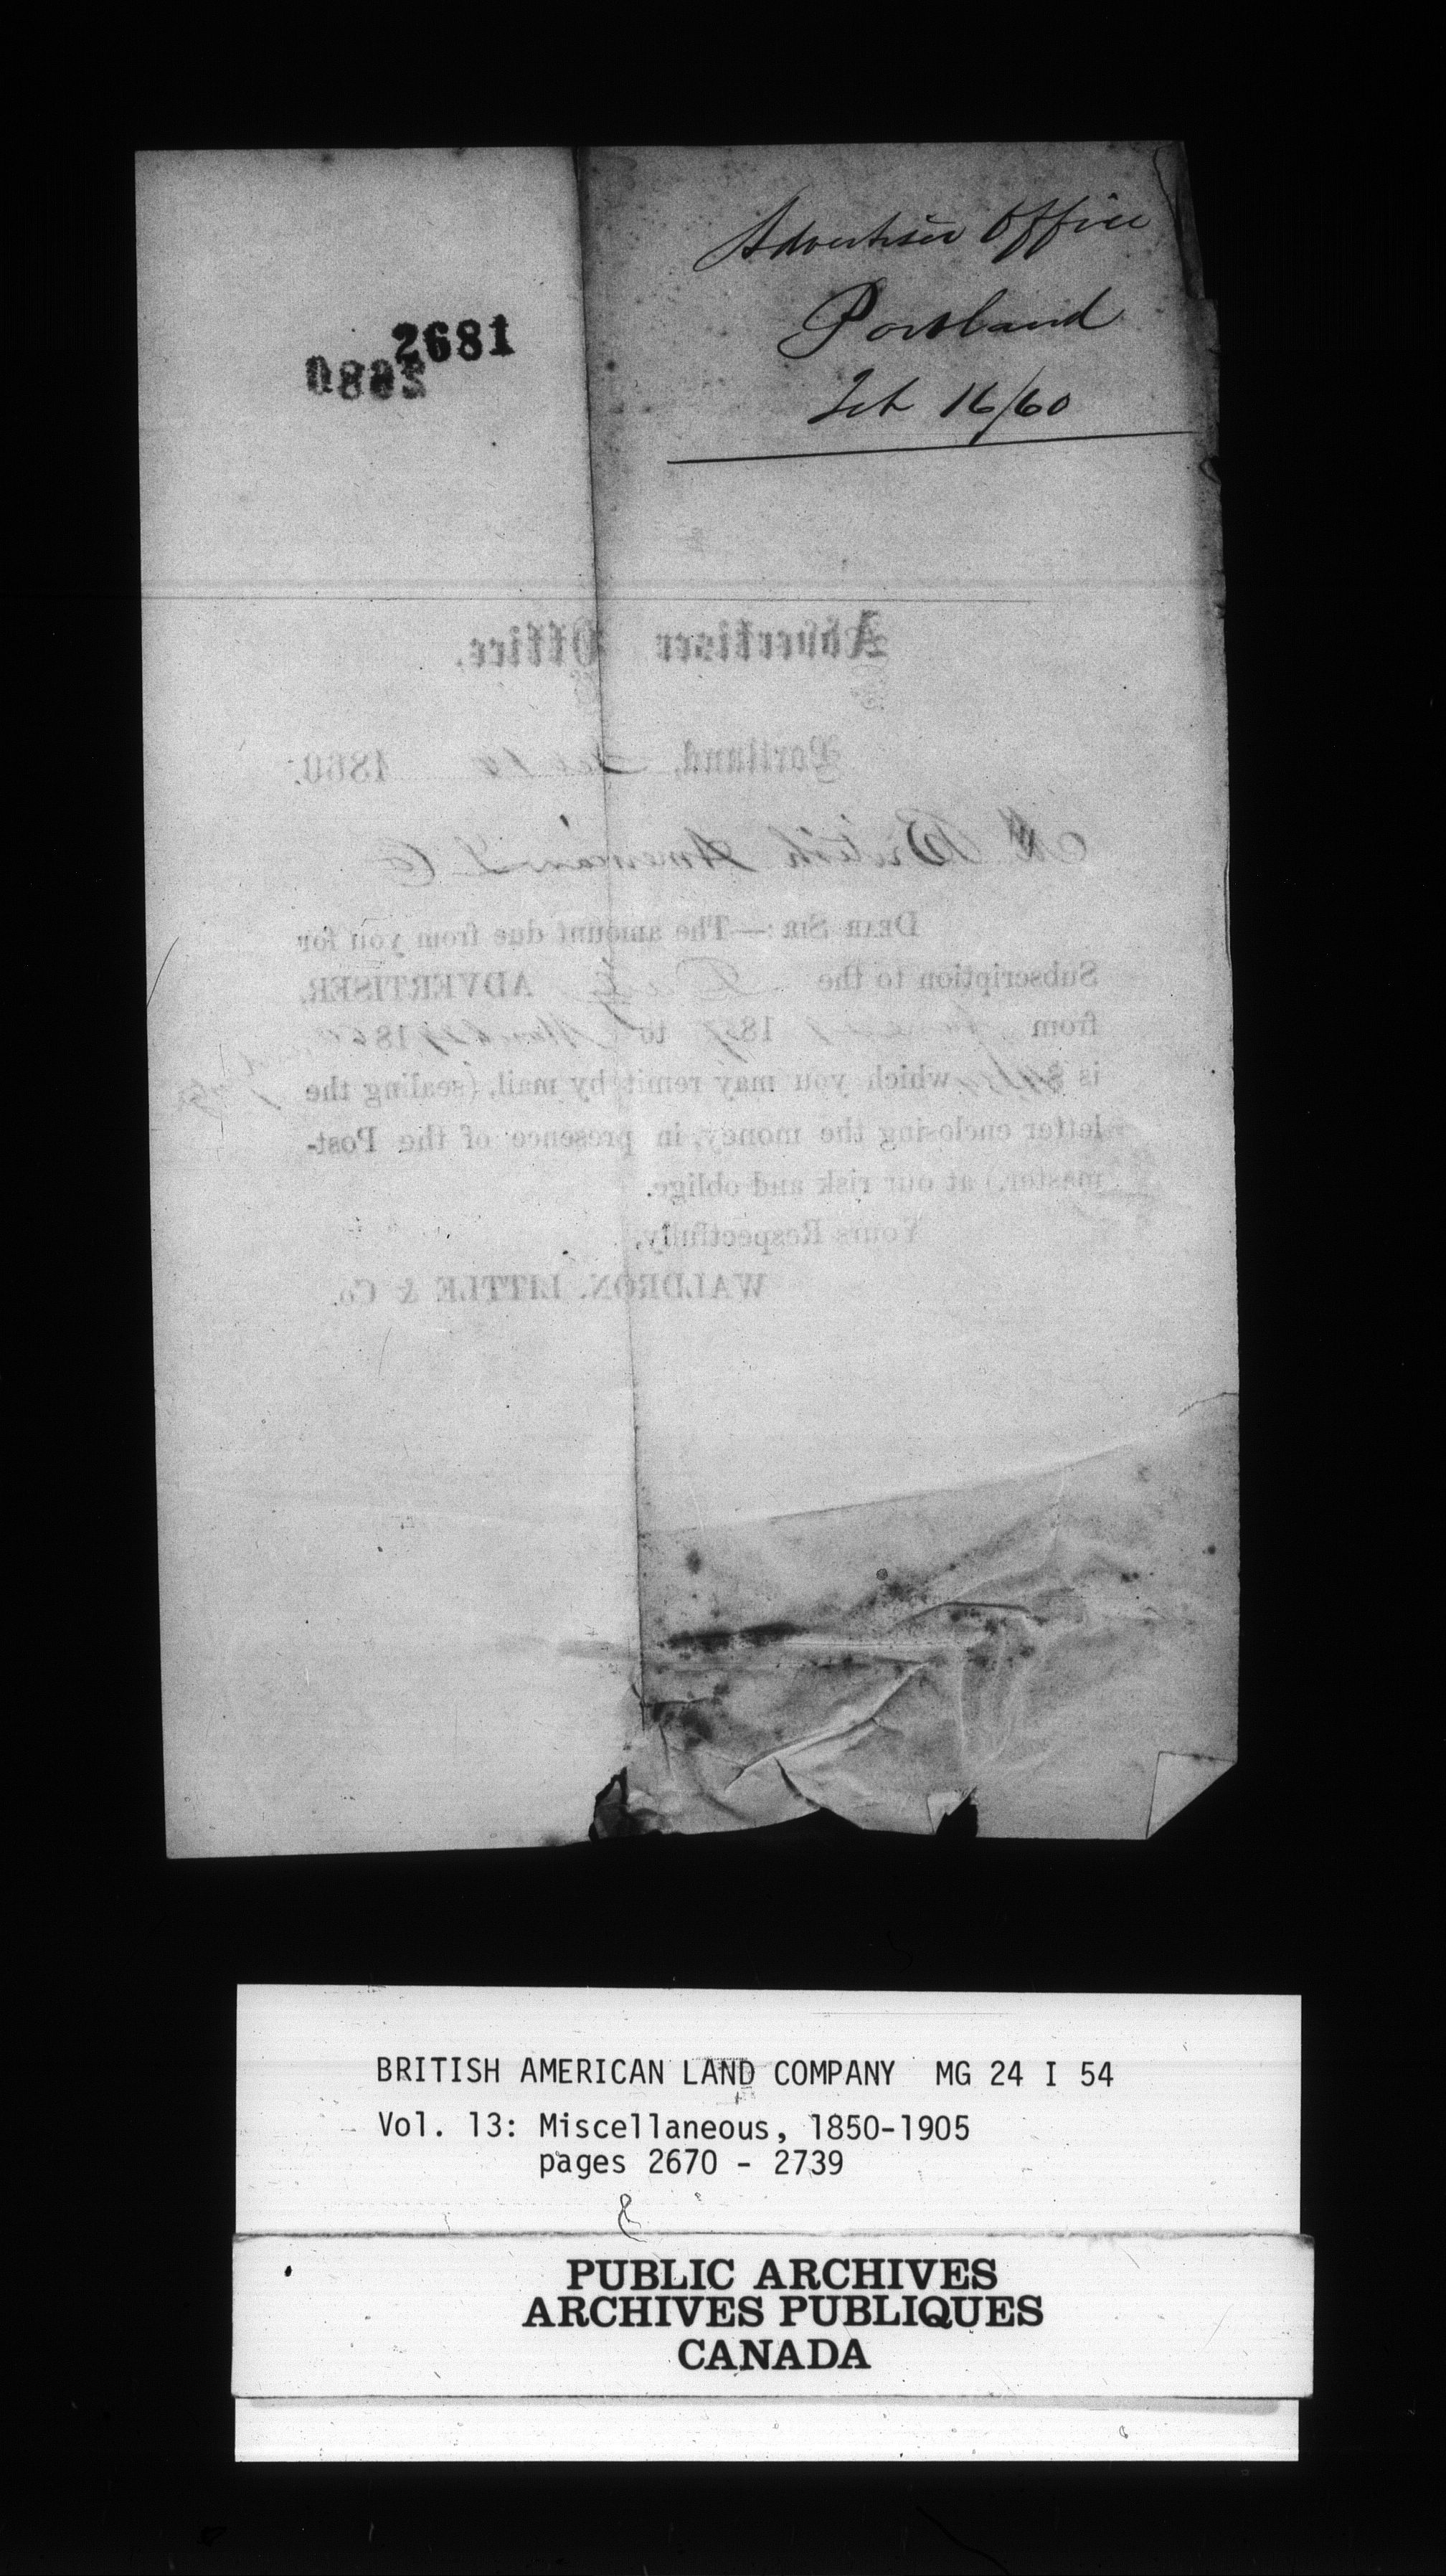 2681
2680
Advertiser Office
Portland
Feb 16/60
Advertiser Office,
Portland, Feb 1860.
Mr British American L Co
DEAR SIR:—The amount due from you for
Subscription to the ADVERTISER,
from 1 1859 to 1860
is which you may remit by mail, (sealing the
letter enclosing the money, in presence of the Post-
master,) at our risk and oblige.
Yours Respectfully,
WALDRON, LITTLE & Co.
BRITISH AMERICAN LAND COMPANY MG 24 I 54
Vol. 13: Miscellaneous, 1850-1905
pages 2670 - 2739
PUBLIC ARCHIVES
ARCHIVES PUBLIQUES
CANADA